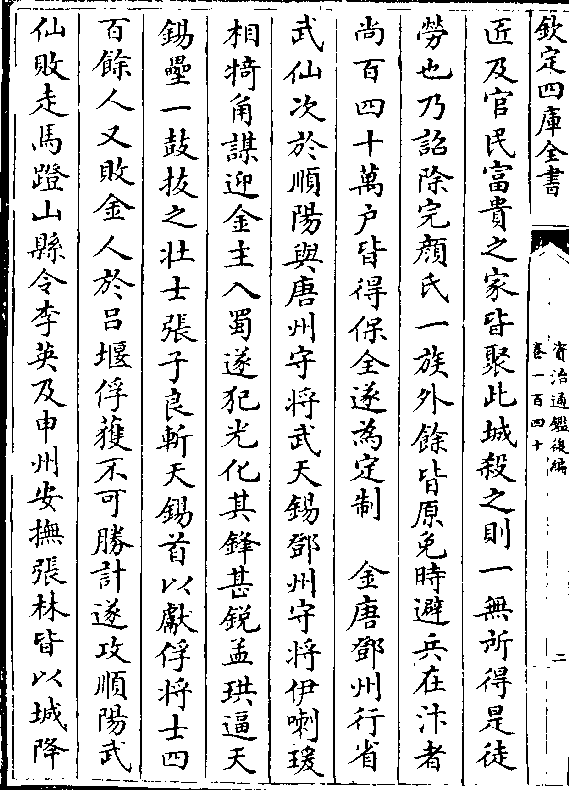 欽定四庫全書
資治通鑑後編
卷一百四十
二
匠及官民富貴之家皆聚此城殺之則一無所得是徒
勞也乃詔除完顔氏一族外餘皆原免時避兵在汴者
尚百四十萬户皆得保全遂為定制　金唐鄧州行省
武仙次於順陽與唐州守将武天錫鄧州守将伊喇瑗
相犄角謀迎金主入蜀遂犯光化其鋒甚鋭孟珙逼天
錫壘一鼓拔之壯士張子良斬天錫首以獻俘将士四
百餘人又敗金人於吕堰俘獲不可勝計遂攻順陽武
仙敗走馬蹬山縣令李英及申州安撫張林皆以城降